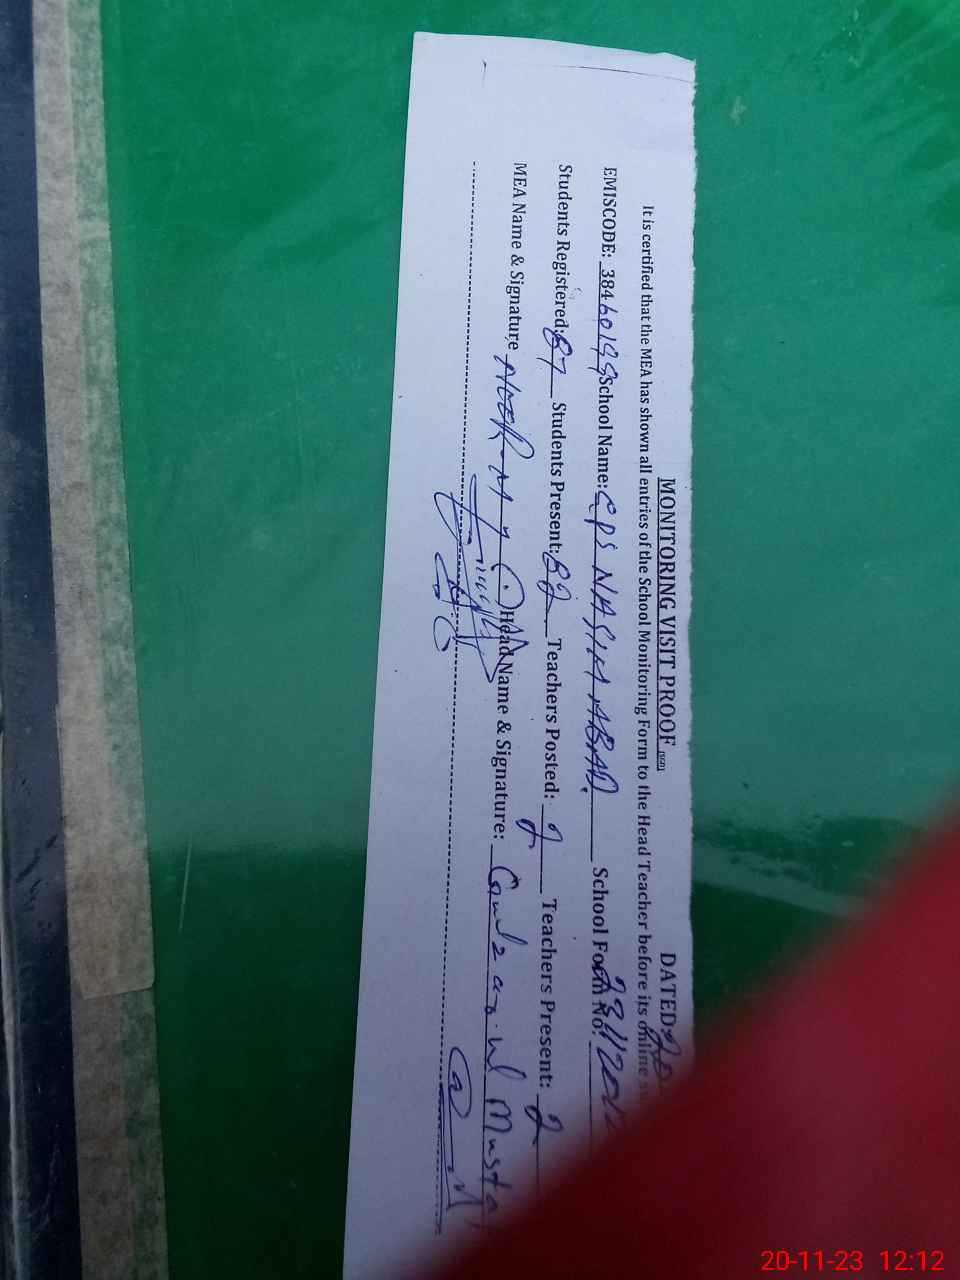 MONITORING VISIT PROOF (SED) DATED: 20
It is certified that the MEA has shown all entries of the School Monitoring Form to the Head Teacher before its online
EMISCODE: 38460199 School Name: GPS NASIM ABAD. School Form No:
Students Registered: 87 Students Present: 82 Teachers Posted: 2 Teachers Present: 2
MEA Name & Signature Head Name & Signature:
20-11-23 12:12